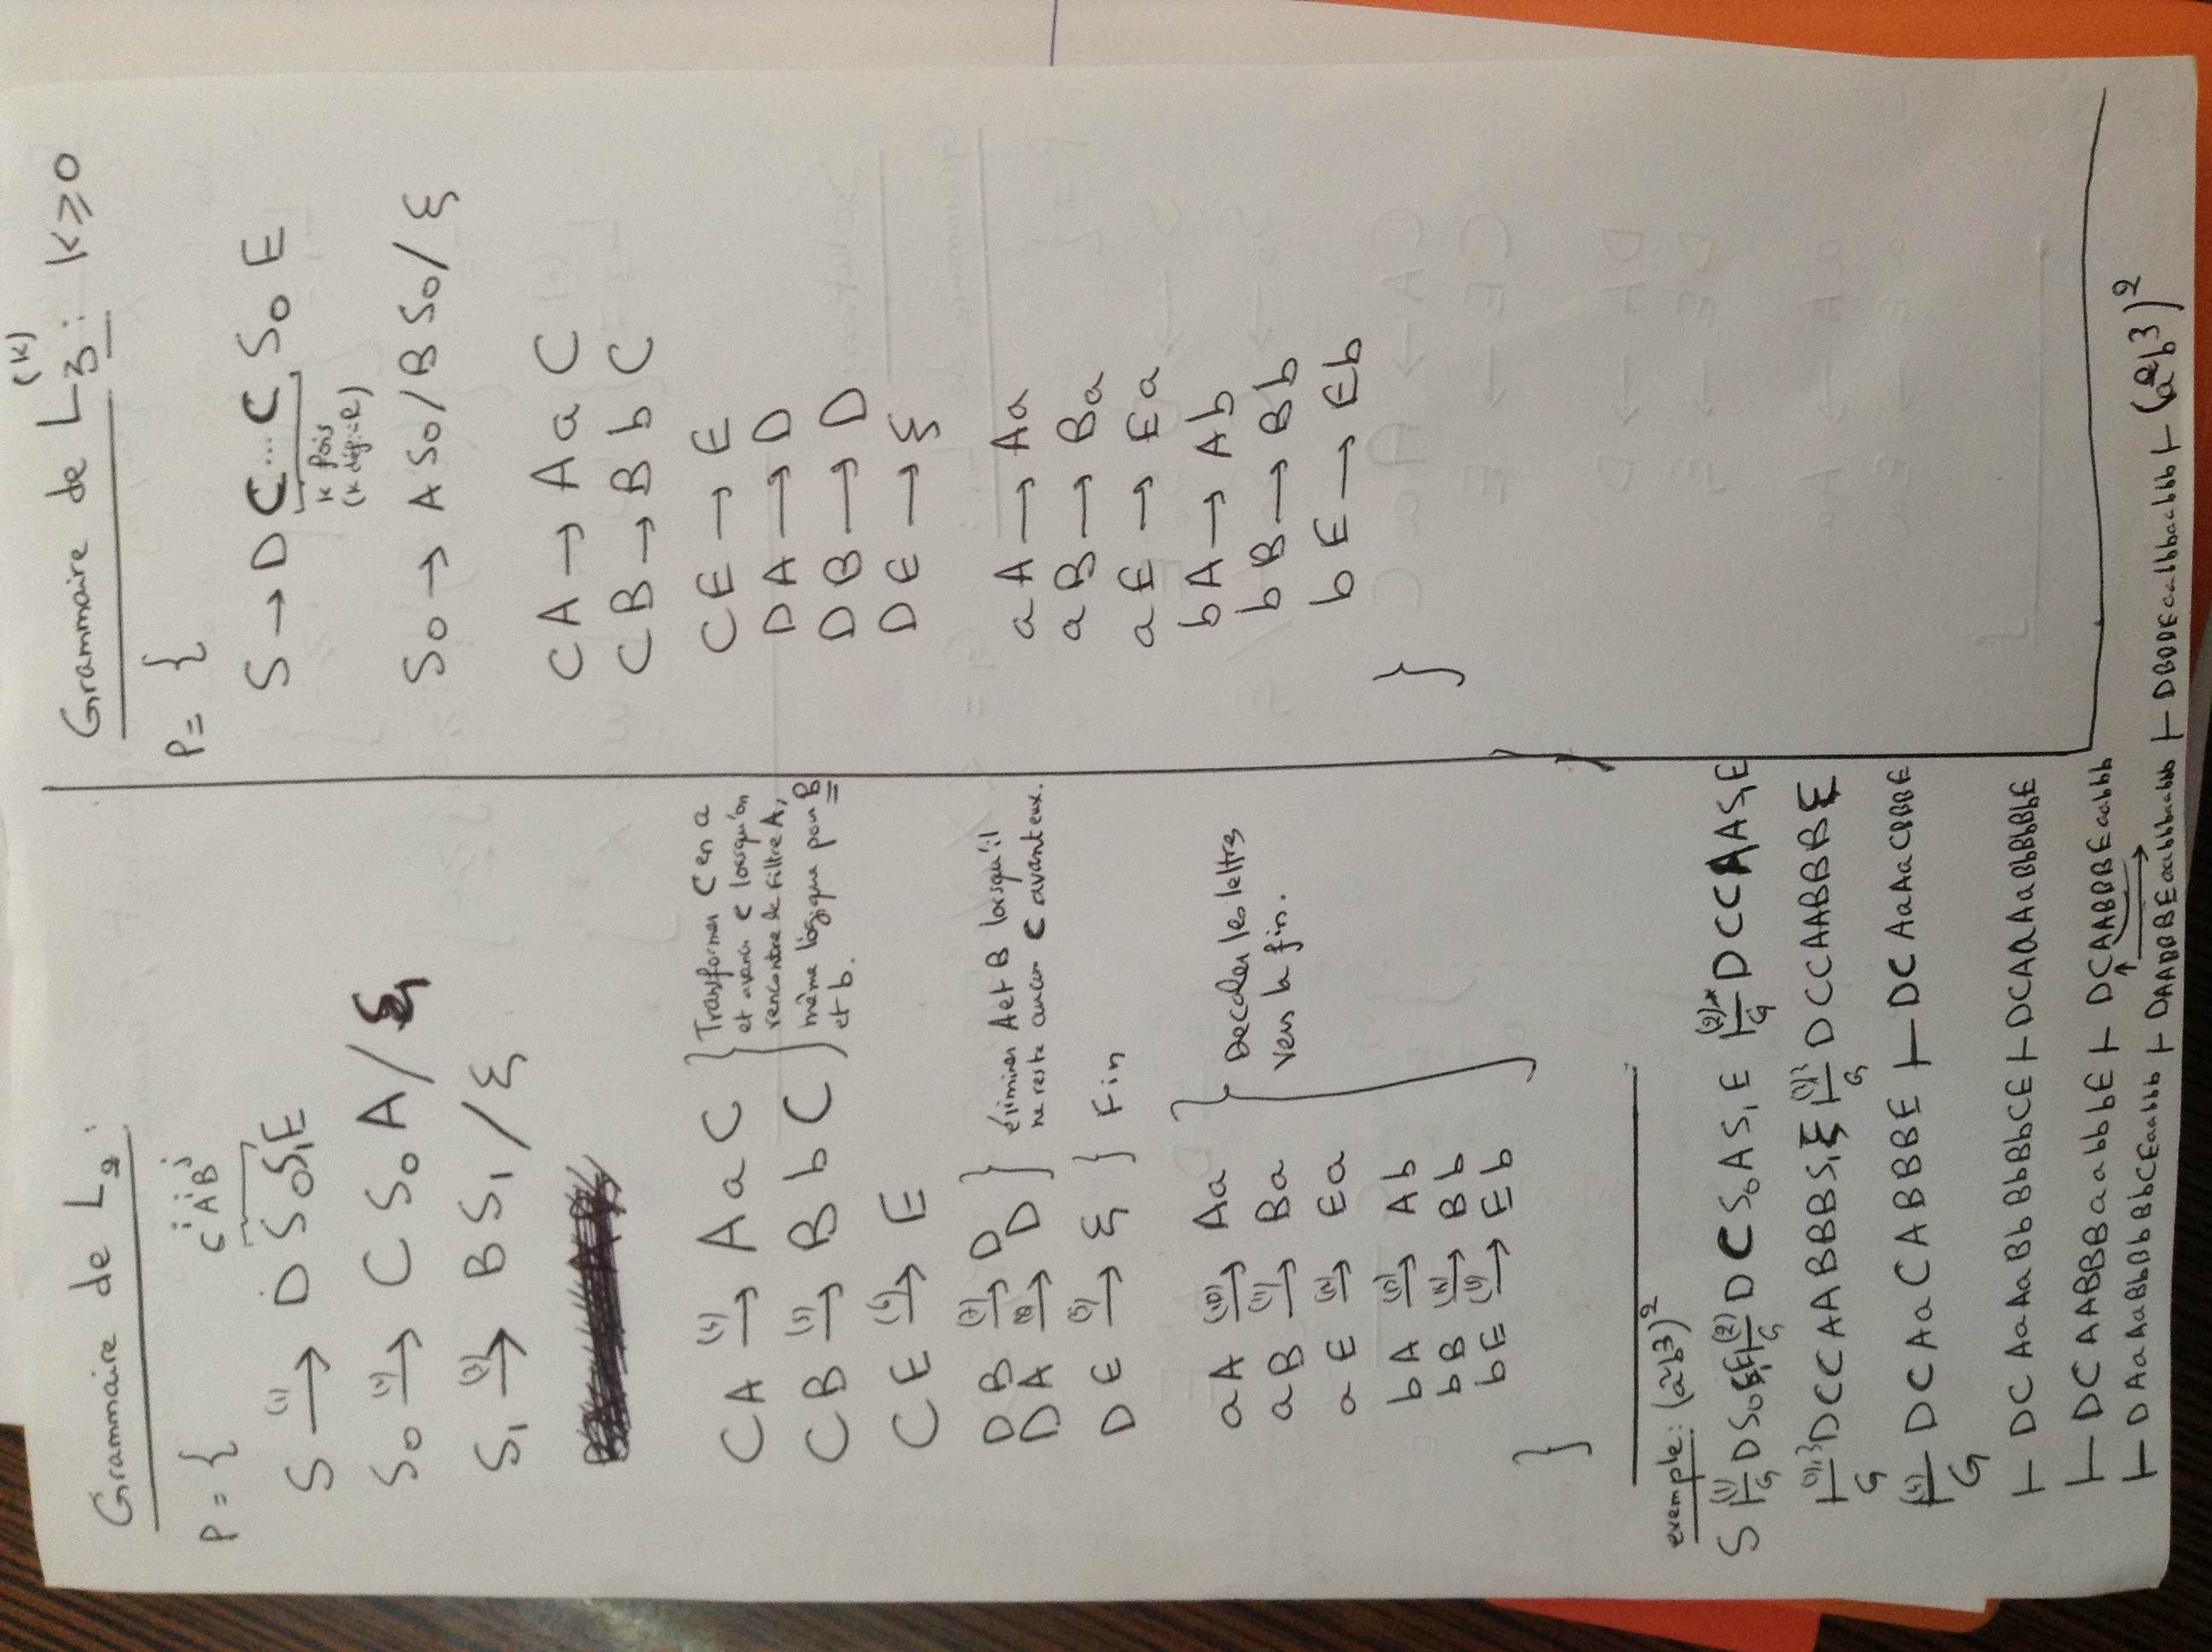 Grammaire de L₂ :
P = {
CⁱAⁱBʲ
S (1)→ D S₀S₁E
S₀ (2)→ C S₀ A / ξ
S₁ (3)→ B S₁ / ξ
CA (4)→ A a C
CB (5)→ B b C
} Transformer C en a
et avancer C lorsqu'on
rencontre le filtre A,
même logique pour B
et b.
CE (6)→ E
DB (7)→ D
DA (8)→ D
} éliminer A et B lorsqu'il
ne reste aucun C avant eux.
DE (9)→ ξ } Fin
aA (10)→ Aa
aB (11)→ Ba
aE (12)→ Ea
bA (13)→ Ab
bB (14)→ Bb
bE (15)→ Eb
} Decaler les lettres
vers la fin.
}
exemple : (a²b³)²
S ⊢G(1) DS₀S₁E ⊢G(2) DCS₀AS₁E ⊢G(2)* DCCAAS₁E
⊢G(3)³ DCCAABBBS₁E ⊢G(3) DCCAABBBE
⊢G(4) DCAaCABBBE ⊢ DCAaAaCBBBE
⊢ DCAaAaBbBbBbCE ⊢ DCAaAaBbBbBbE
⊢ DCAABBBaabbbE ⊢ DCAABBBEaabbb
⊢ DAaAaBbBbBbCEaabbb ⊢ DAABBBEaabbbaabbb ⊢ DBBBEaabbbaabbb ⊢ (a²b³)²
Grammaire de L₃⁽ᵏ⁾ : K ≥ 0
P = {
S → D C...C S₀ E
K fois
S₀ → A S₀ / B S₀ / ξ
CA → A a C
CB → B b C
CE → E
DA → D
DB → D
DE → ξ
aA → Aa
aB → Ba
aE → Ea
bA → Ab
bB → Bb
bE → Eb
}